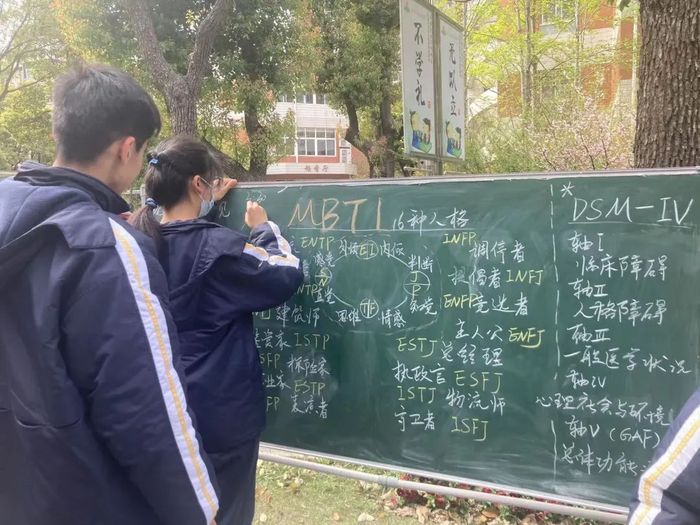 不学礼
无以立
MBTI 16种人格
ENTP 外倾 EI 内倾 INFP 调停者
感觉 判断 提倡者 INFJ
S N J P
直觉 知觉 ENFP 竞选者
建筑师 思维 TF 情感 主人公 ENFJ
ISTP ESTJ 总经理
探险家 执政官 ESFJ
ESTP ISTJ 物流师
表演者 守卫者 ISFJ
* DSM-IV
轴I
临床障碍
轴II
人格障碍
轴III
一般医学状况
轴IV
心理社会与环境
轴V (GAF)
总体功能